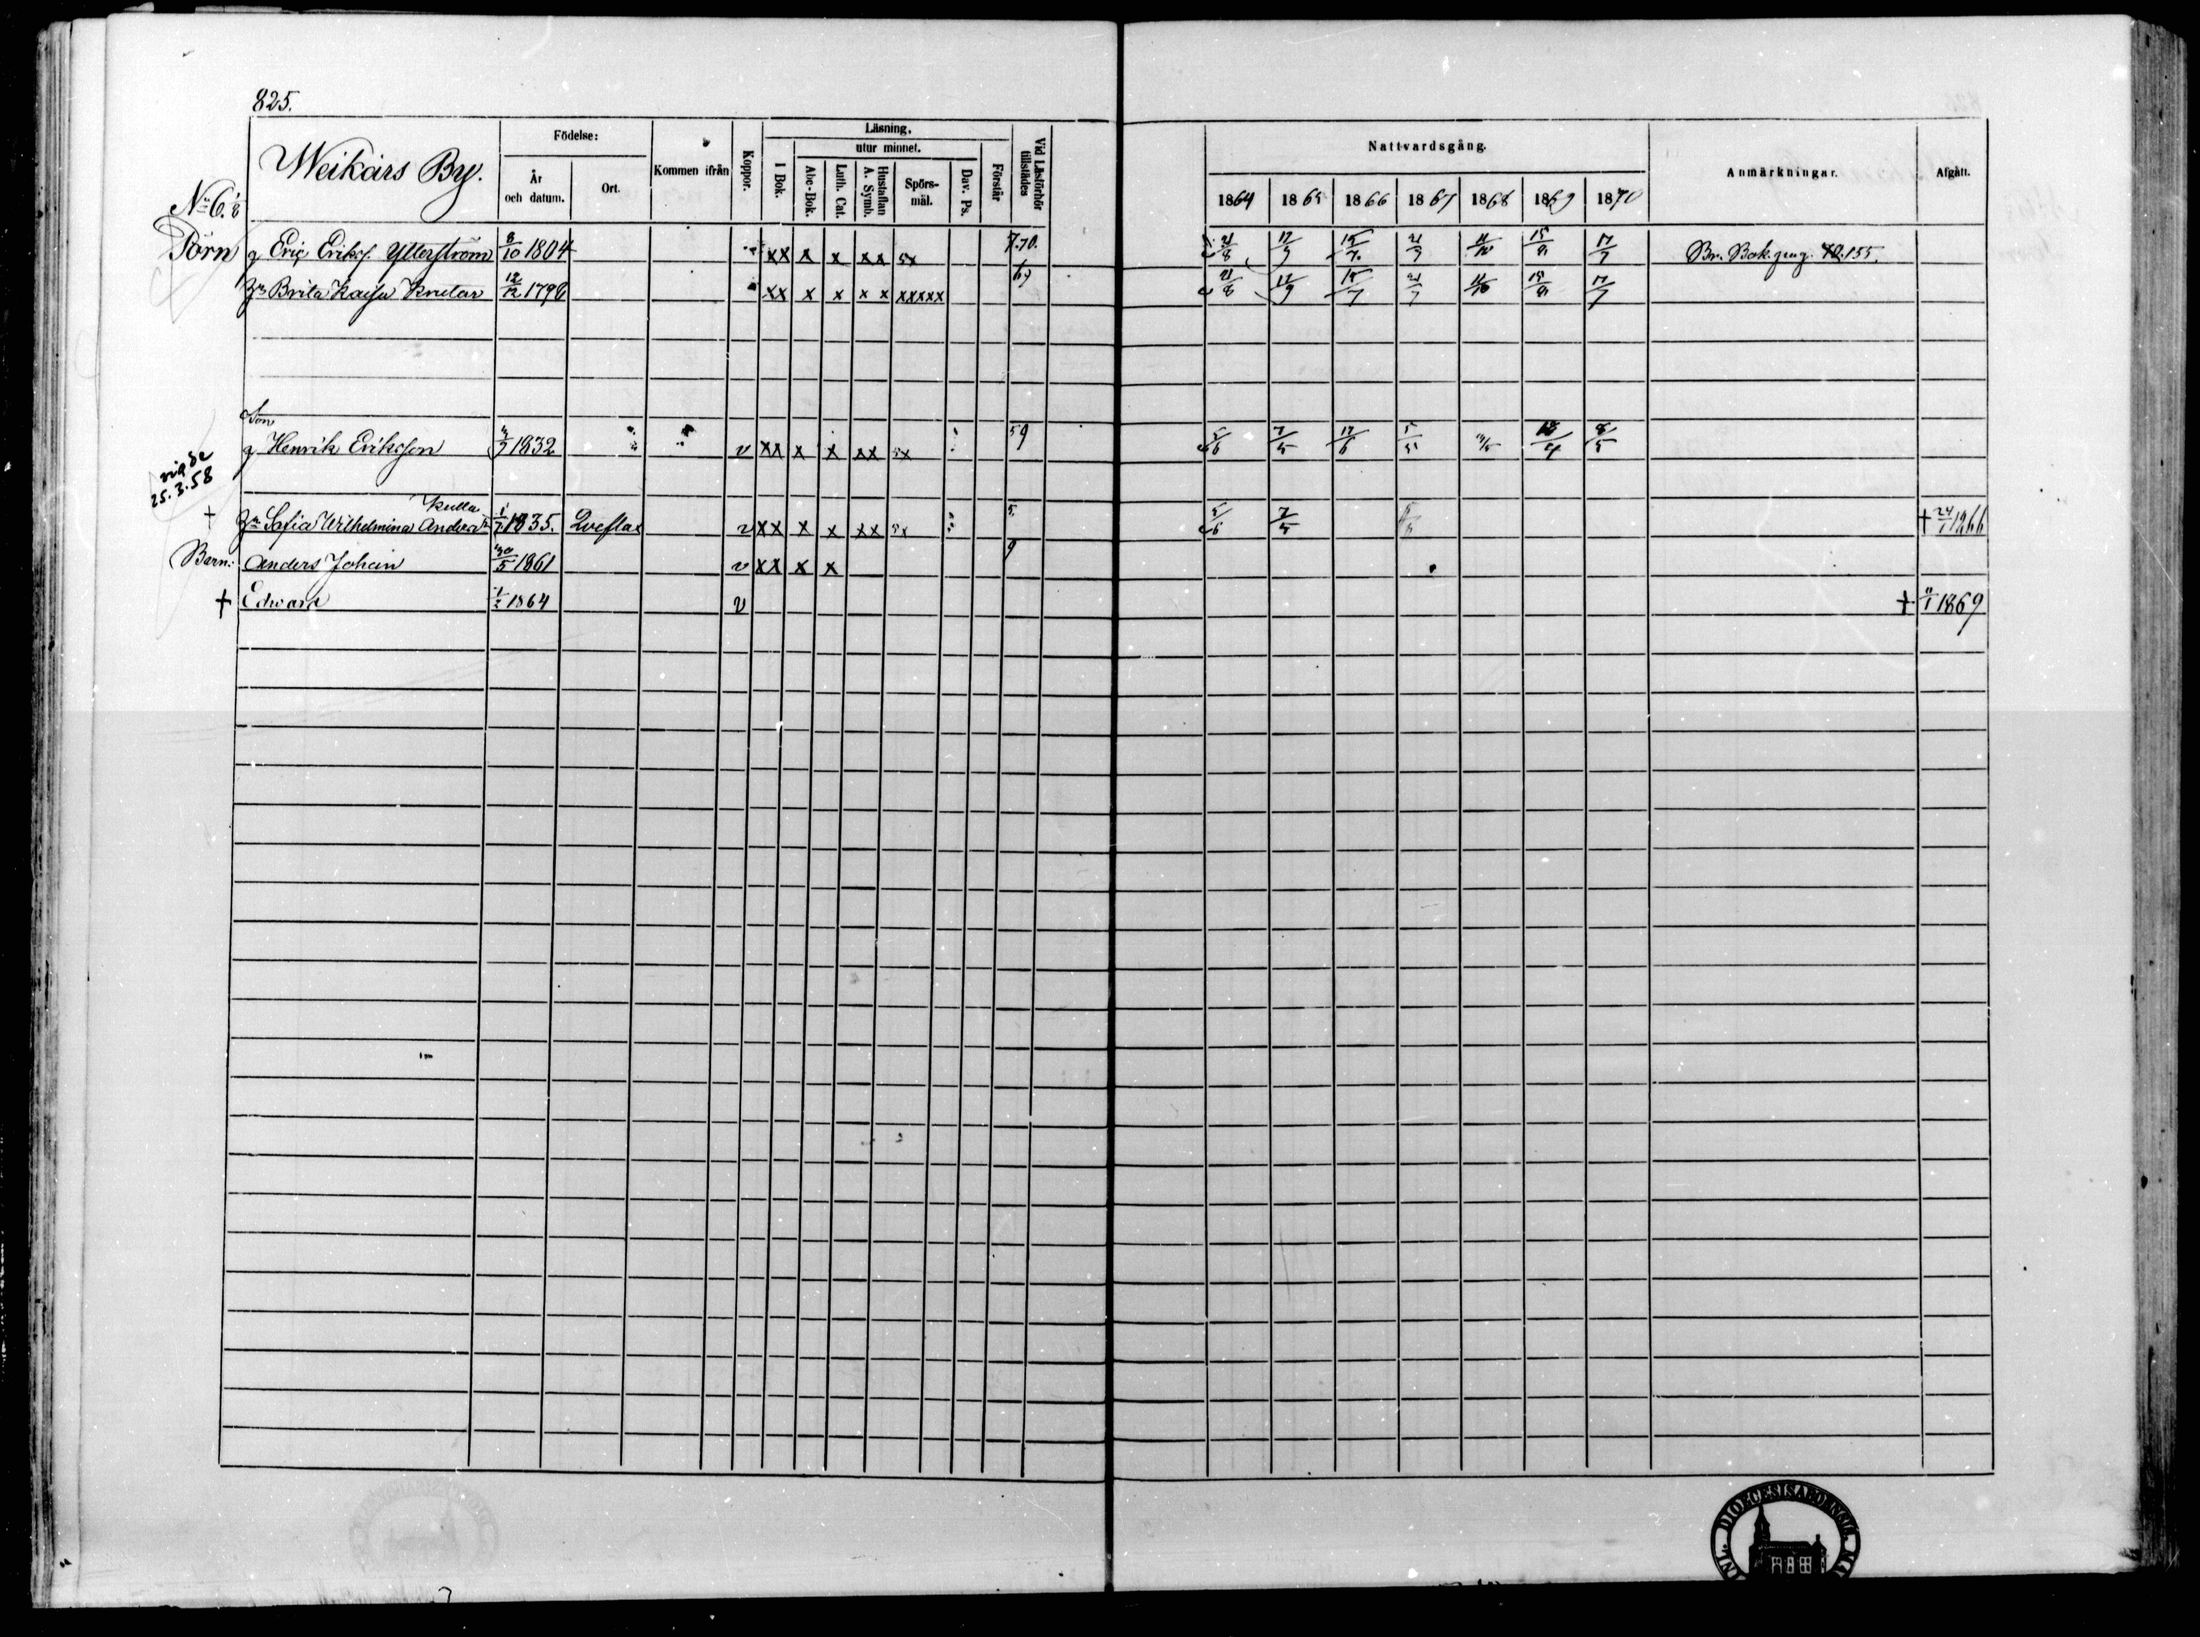 825.
Weikars By.
Födelse:
År och datum.
Ort.
Kommen ifrån
Koppor.
Läsning.
utur minnet.
I Bok.
Abc-Bok.
Luth. Cat.
Hustaflan A. Symb.
Spörs-mål.
Dav. Ps.
Förstår
Vid Läsförhör tillstädes
Nattvardsgång.
1864 1865 1866 1867 1868 1869 1870
Anmärkningar.
Afgått.
No 6. 1/8
Törn
g Eric Eriks. Ytterström 8/10 1804 xx x x xx 5x 7.70. 21/8 17/9 15/7 21/7 11/10 15/8 17/7 Br. Bok. pag. 155.
Brita Kajsa Knutar 12/12 1796 xx x x x x xxxxx 69 21/8 17/9 15/7 21/7 11/10 15/8 17/7
Son
g Henrik Eriksson 1832 v xx x x xx 5x 59 5/6 7/5 17/6 5/5 8/5
vigde
25.3.58
Kulla
+ Sofia Wilhelmina Anders 1835. Qveflax v xx x x xx 5x 5 5/6 7/5 + 24/1 1866
Barn: Anders Johan 30/5 1861 v xx x x 9
+ Edvard 1/2 1864 v + 11/1 1869
DIOECESIS ABOENSIS.